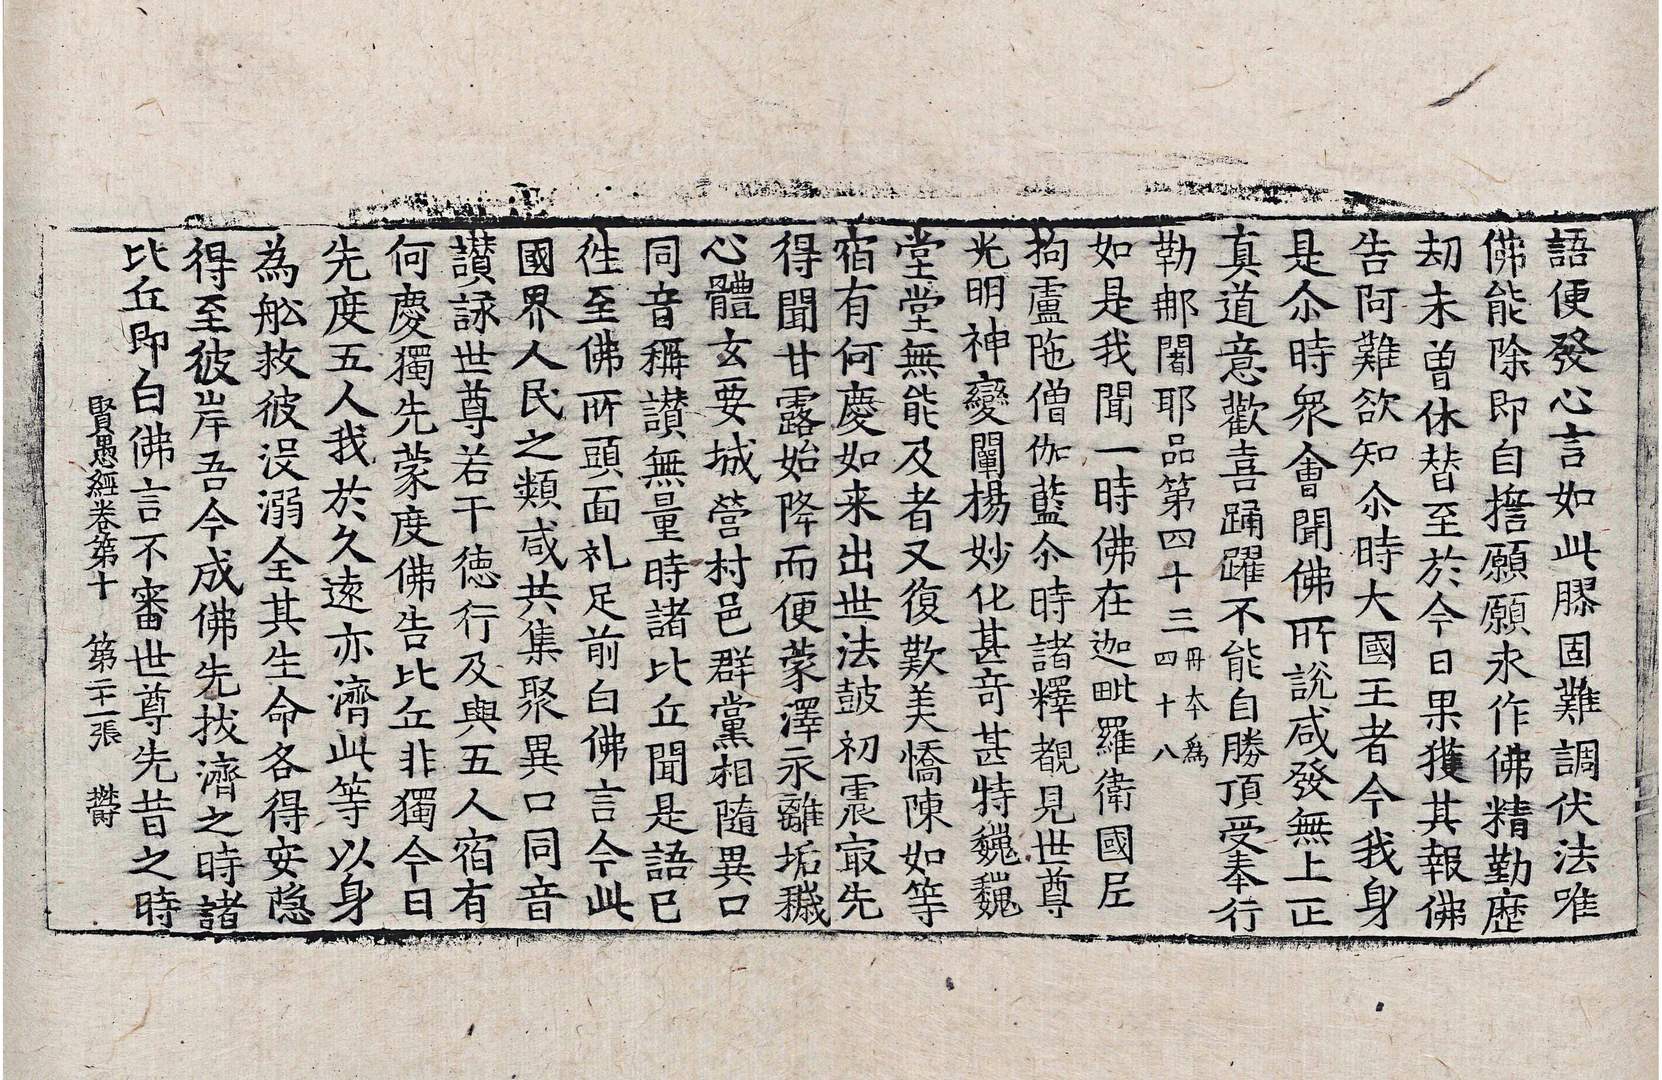 語便發心言如此膠固難調伏法唯
佛能除即自擔願願求作佛精勤歷
劫未曽休替至於今日果獲其報佛
告阿難欲知尒時大國王者今我身
是尒時衆會聞佛所說咸發無上正
真道意歡喜踊躍不能自勝頂受奉行
勒那闍耶品第四十三 丹本為四十八
如是我聞一時佛在迦毗羅衛國尼
拘盧陁僧伽藍尒時諸釋覩見世尊
光明神變闡揚妙化甚奇甚特巍巍
堂堂無能及者又復歎美憍陳如等
宿有何慶如来出世法鼓初震冣先
得聞甘露始降而便蒙澤永離垢穢
心體玄要城營村邑群黨相隨異口
同音稱讃無量時諸比丘聞是語已
徃至佛所頭面礼足前白佛言今此
國界人民之類咸共集聚異口同音
讃詠世尊若干德行及與五人宿有
何慶獨先蒙度佛告比丘非獨今日
先度五人我於久遠亦濟此等以身
為舩救彼没溺全其生命各得安隐
得至彼岸吾今成佛先拔濟之時諸
比丘即白佛言不審世尊先昔之時
賢愚經卷第十 第二十一張 欝